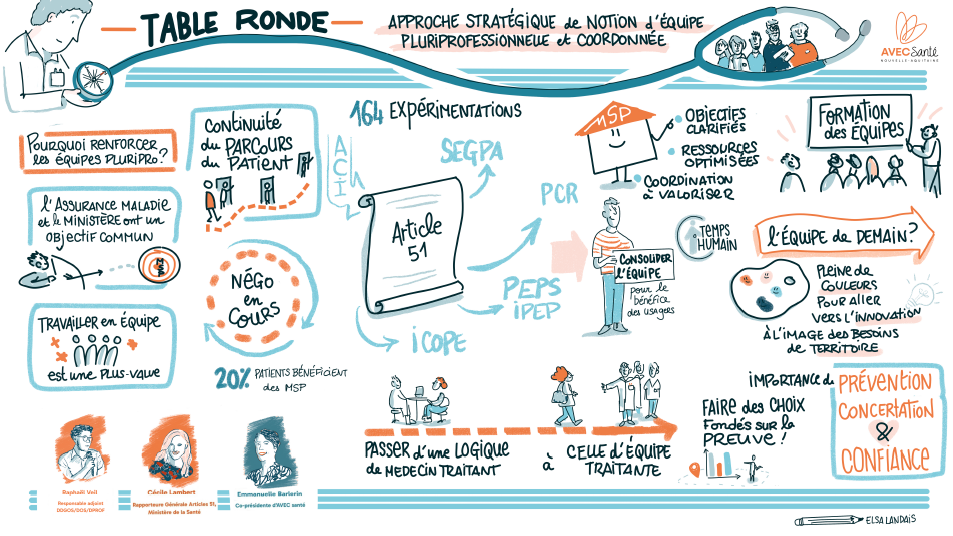 TABLE RONDE
APPROCHE STRATÉGIQUE de NOTION d'ÉQUIPE
PLURIPROFESSIONNELLE et COORDONNÉE
AVECSanté
NOUVELLE-AQUITAINE
POURQUOI RENFORCER
les ÉQUIPES PLURIPRO?
l'ASSURANCE MALADIE
et le MINISTÈRE ONT UN
OBJECTIF COMMUN
MSP
TRAVAILLER en ÉQUIPE
est UNE PLUS-VALUE
CONTINUITÉ
du PARCOURS
du PATIENT
NÉGO
en
COURS
20% PATIENTS BÉNÉFICIENT
des MSP
164 EXPÉRIMENTATIONS
ACI
SEGPA
Article
51
PCR
PEPS
iPEP
iCOPE
MSP
OBJECTIFS
CLARIFIÉS
RESSOURCES
OPTIMISÉES
COORDINATION
à VALORISER
TEMPS
HUMAIN
CONSOLIDER
l'ÉQUIPE
pour le
bénéfice
des USAGERS
FORMATION
des ÉQUIPES
l'ÉQUIPE de DEMAIN?
PLEINE de
COULEURS
POUR ALLER
VERS L'INNOVATION
À L'IMAGE des BESOINS
de TERRITOIRE
PASSER d'UNE LOGIQUE
de MEDECIN TRAITANT
à
CELLE d'ÉQUIPE
TRAITANTE
FAIRE des CHOIX
FONDÉS SUR la
PREUVE!
IMPORTANCE de
PRÉVENTION
CONCERTATION
&
CONFIANCE
Raphaël Veil
Responsable adjoint
DDGOS/DOS/DPROF
Cécile Lambert
Rapporteure Générale Articles 51,
Ministère de la Santé
Emmanuelle Barlerin
Co-présidente d'AVEC santé
ELSA LANDAIS